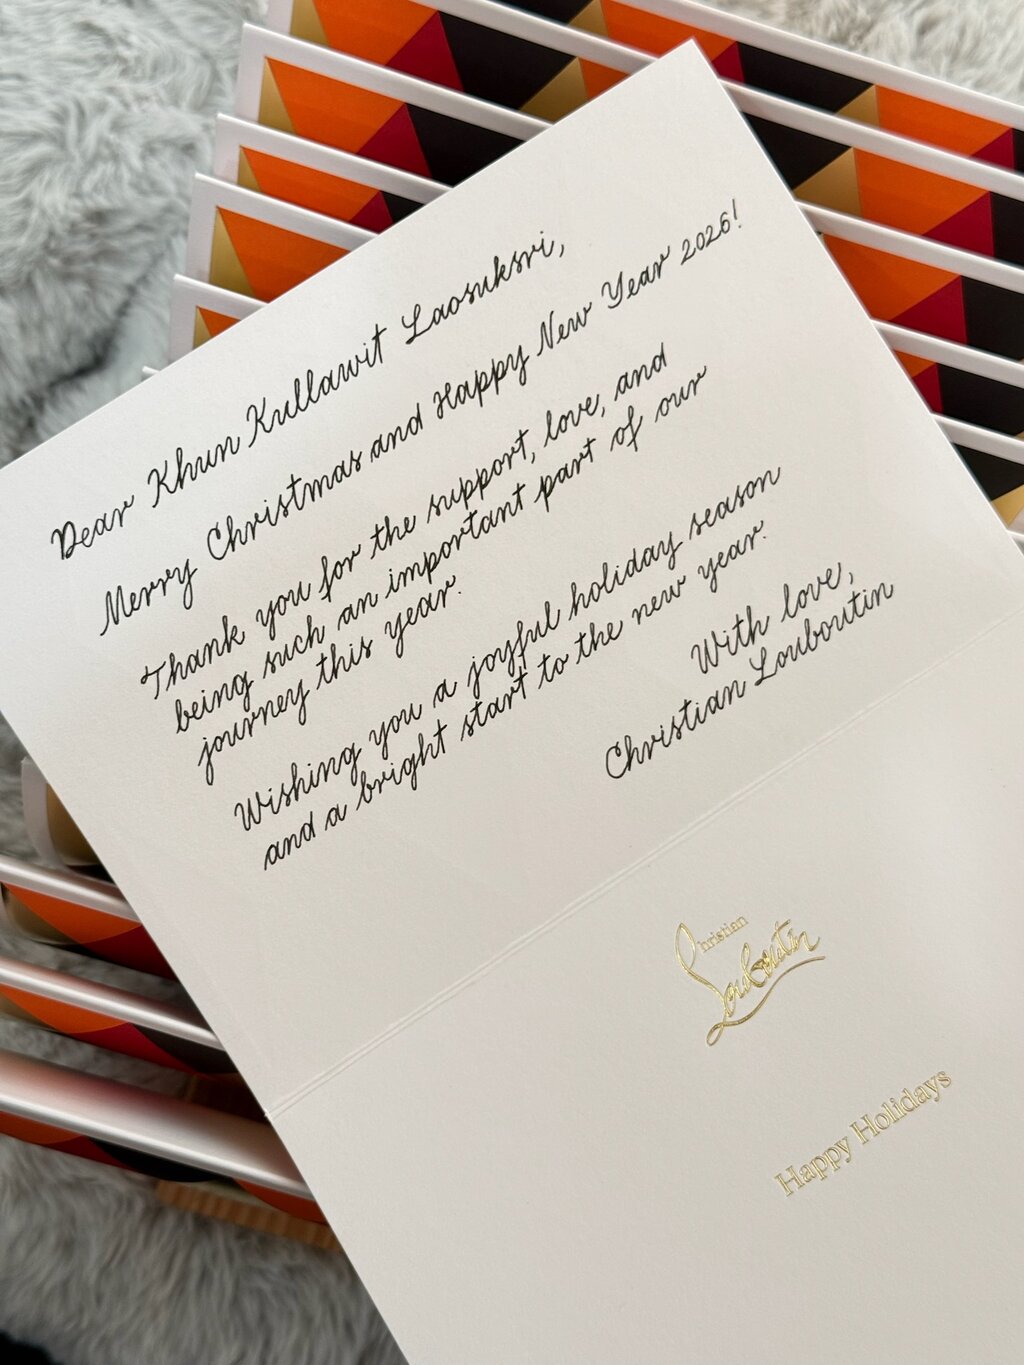 Dear Khun Kullawit Laosuksri,
Merry Christmas and Happy New Year 2026!
Thank you for the support, love, and
being such an important part of our
journey this year.
Wishing you a joyful holiday season
and a bright start to the new year.
With love,
Christian Louboutin
Christian
Louboutin
Happy Holidays